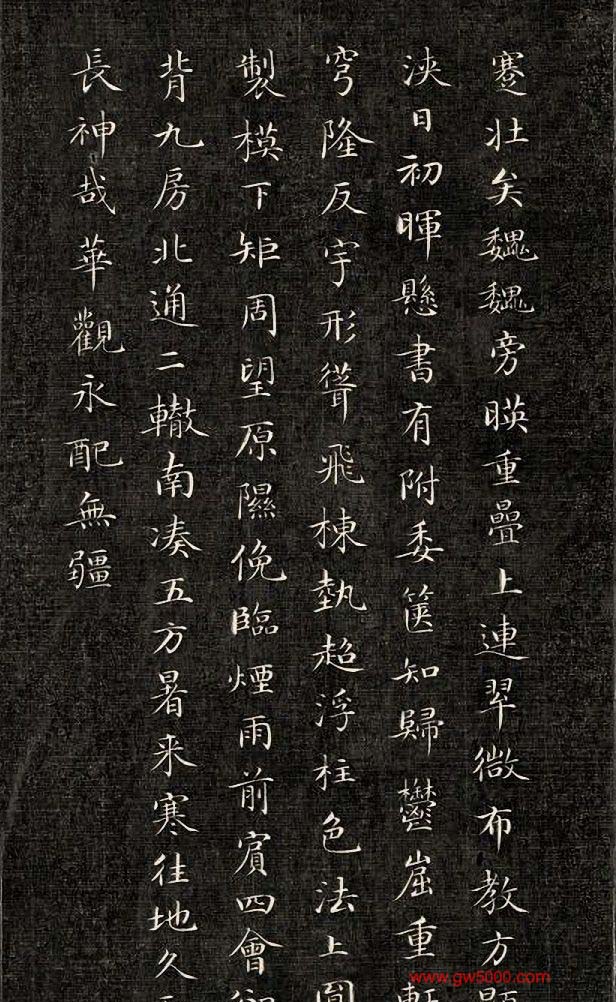 蹇壯矣魏魏旁暎重疊上連翠微布教方
浹日初暉懸書有附委篋知歸鬱崛重
穹隆反宇形聳飛棟埶超浮柱色法上圓
製模下矩周望原隰俛臨煙雨前賓四會
背九房北通二轍南湊五方暑来寒往地久
長神哉華觀永配無疆
www.gw5000.com